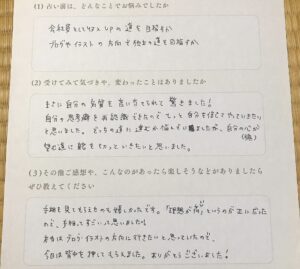 (1) 占い前は、どんなことでお悩みでしたか
会社員としてキャリアupの道を目指すか
ブログやイラストの方向で独自の道を目指すか
(2) 受けてみて気づきや、変わったことはありましたか
まさに自分の気質を言い当てられて驚きました！
自分の思考癖を再認識できたので、もっと自分を信じてやっていきたい
と思いました。どっちの道に進むか悩んでいましたが、自分の心が
望む道に舵をきっていきたいと思いました。
(3) その他ご感想や、こんなのがあったら楽しそうなどがありましたら
ぜひ教えてください
手相を見てもらえたのも嬉しかったです。「理想が高い」というのが
ので、手相ってすごいって思いました！
本当はブログ・イラストの方向に行きたいと思っていたので、
今日は背中を押してもらえました。ありがとうございました！